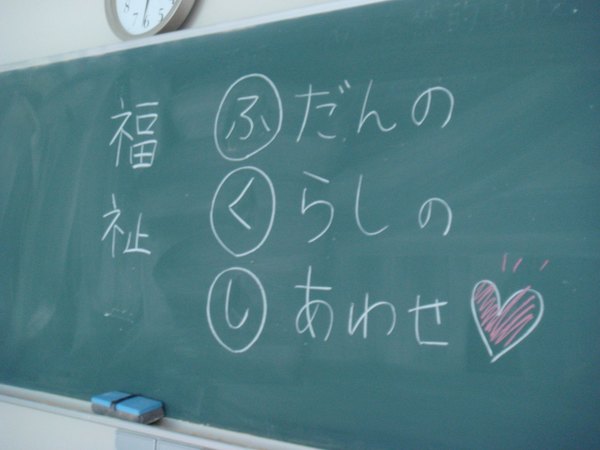 福祉
ふだんの
くらしの
しあわせ